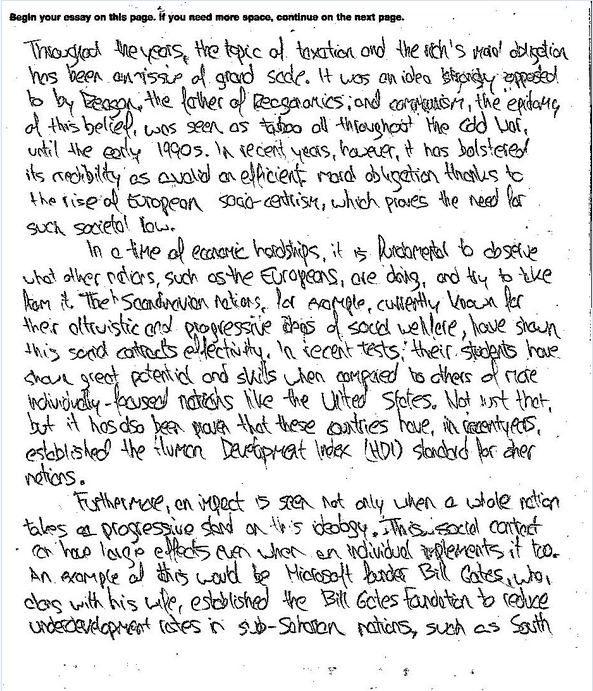 Begin your essay on this page. If you need more space, continue on the next page.
Throughout the years, the topic of taxation and the rich's moral obligation
has been an issue of grand scale. It was an idea strongly opposed
to by Reagan, the father of Reaganomics, and communism, the epitome
of this belief, was seen as taboo all throughout the Cold War,
until the early 1990s. In recent years, however, it has bolstered
its credibility as a valid an efficient moral obligation thanks to
the rise of European socio-centrism, which proves the need for
such societal law.
In a time of economic hardships, it is fundamental to observe
what other nations, such as the Europeans, are doing, and try to take
from it. The Scandinavian nations, for example, currently known for
their altruistic and progressive ideas of social welfare, have shown
this social contracts effectivity. In recent tests, their students have
shown great potential and skills when compared to others of more
individually-focused nations like the United States. Not just that,
but it has also been proven that these countries have, in recent years,
established the Human Development Index (HDI) standard for other
nations.
Furthermore, an impact is seen not only when a whole nation
takes a progressive stand on this ideology. This social contract
can have large effects even when an individual implements it too.
An example of this would be Microsoft founder Bill Gates, who,
along with his wife, established the Bill Gates Foundation to reduce
underdevelopment rates in sub-Saharan nations, such as South